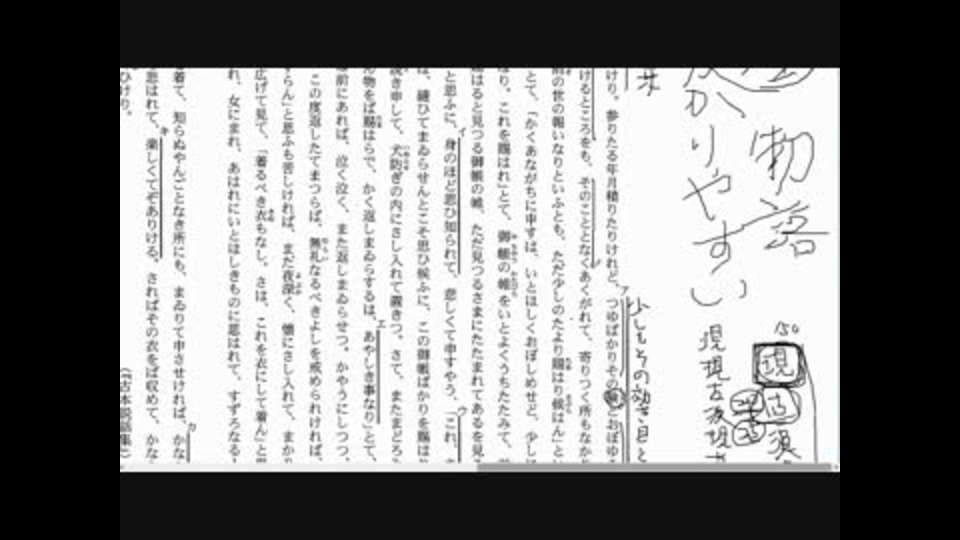 わかりやすい
150
現
古
現現古友現古
少しもその効き目と
けり。参りたる年月積りたりけれど、つゆばかりその験とおぼゆ
けるところをも、そのこととなくあくがれて、寄りつく所もなか
前の世の報いなりといふとも、ただ少しのたより賜はり候はん」とい
とて、「かくあながちに申すは、いとほしくおぼしめせど、少し
なり。これを賜はれ」とて、御帳の帷をいとよくうちたたみて、
賜はると見つる御帳の帷、ただ見つるさまにたたまれてあるを見
と思ふに、身のほど思ひ知られて、悲しくて申すやう、「これ、
は、縫ひてまゐらせんとこそ思ひ候ふに、この御帳ばかりを賜は
き申して、犬防ぎの内にさし入れて置きつ。さて、またまどろ
物をば賜はらで、かく返しまゐらするは、あやしき事なり」とて、
前にあれば、泣く泣く、また返しまゐらせつ。かやうにしつつ、
この度返したてまつらば、無礼なるべきよしを戒められければ、
すらん」と思ふも苦しければ、まだ夜深く、懐にさし入れて、まか
広げて見て、「着るべき衣もなし。さは、これを衣にして着ん」と思
れ、女にまれ、あはれにいとほしきものに思はれて、すずろなる
着て、知らぬやんごとなき所にも、まゐりて申させければ、かな
思はれて、楽しくてぞありける。さればその衣をば収めて、かな
ひけり。
（『古本説話集』）
ア
イ
ウ
エ
カ
キ